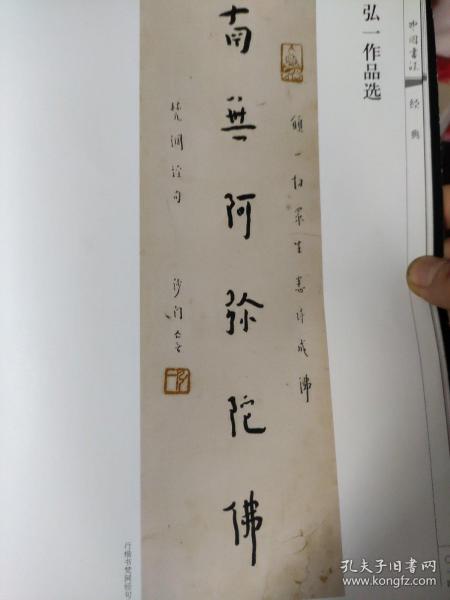 中国书法
经典
弘一作品选
願一切眾生悉皆成佛
南無阿弥陀佛
梵網經句
沙門
行楷书梵网经句
孔夫子旧书网